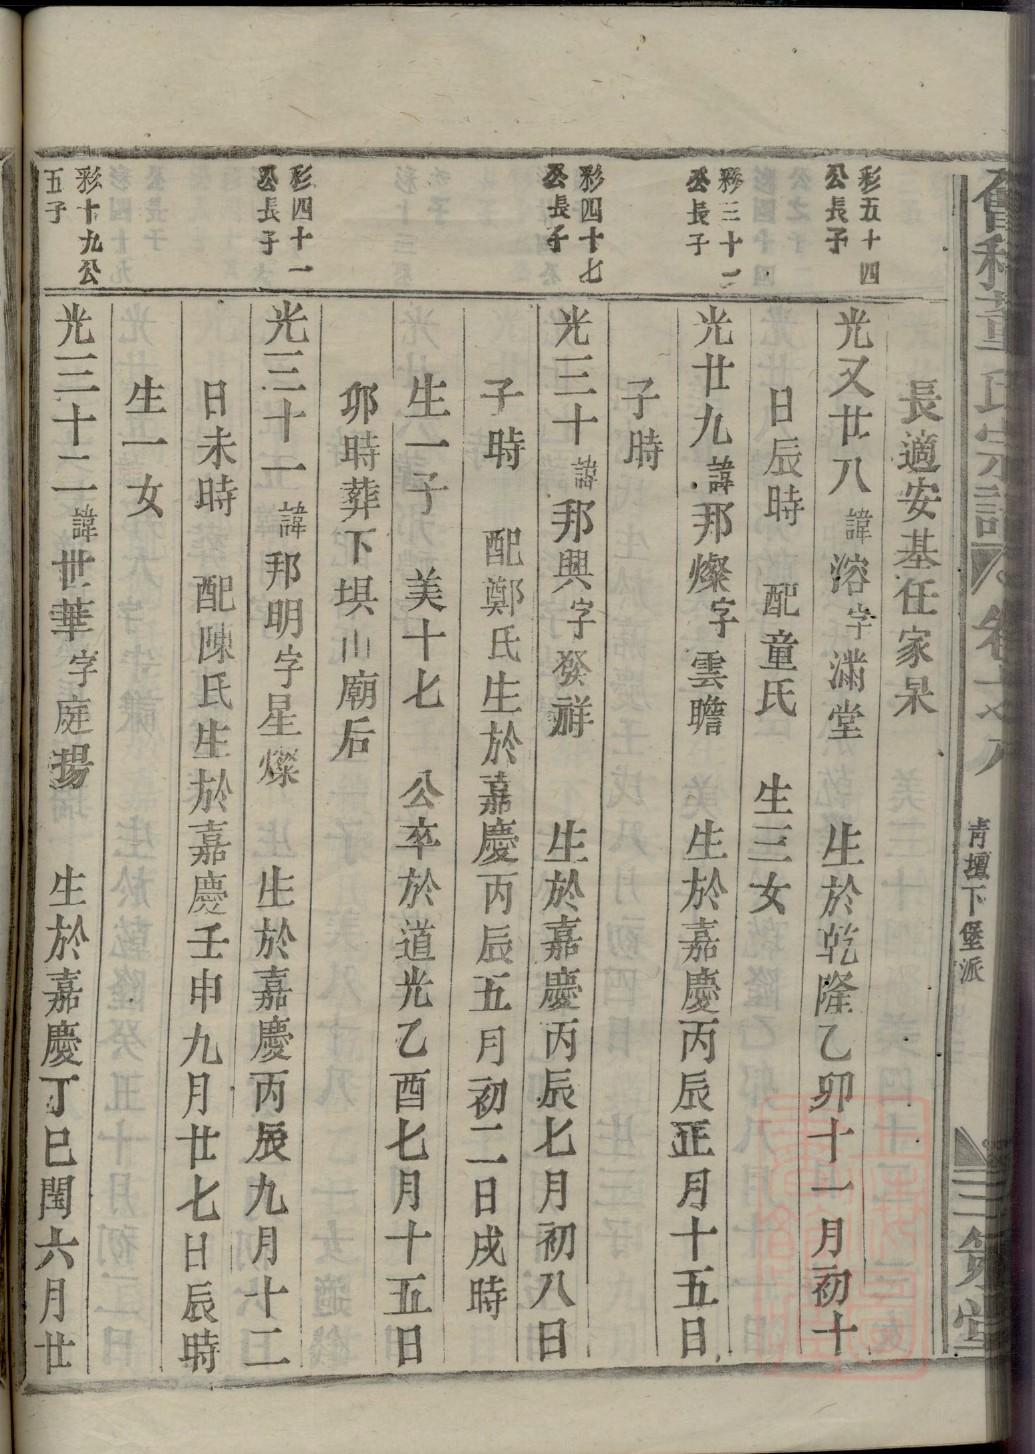 會稽童氏宗譜 卷之八 青壇下堡派 三策堂
長適安基任家杲
彩五十四
公長子
光又廿八諱溶字滿堂 生於乾隆乙卯十一月初十
日辰時 配童氏 生三女
彩三十二
公長子
光廿九諱邦燦字雲瞻 生於嘉慶丙辰正月十五日
子時
彩四十七
公長子
光三十諱邦興字發祥 生於嘉慶丙辰七月初八日
子時 配鄭氏生於嘉慶丙辰五月初二日戌時
生一子 美十七 公卒於道光乙酉七月十五日
卯時葬下塓山廟后
彩四十一
公長子
光三十一諱邦明字星燦 生於嘉慶丙辰九月十二
日未時 配陳氏生於嘉慶壬申九月廿七日辰時
生一女
彩十九公
五子
光三十二諱世華字庭揚 生於嘉慶丁巳閏六月廿